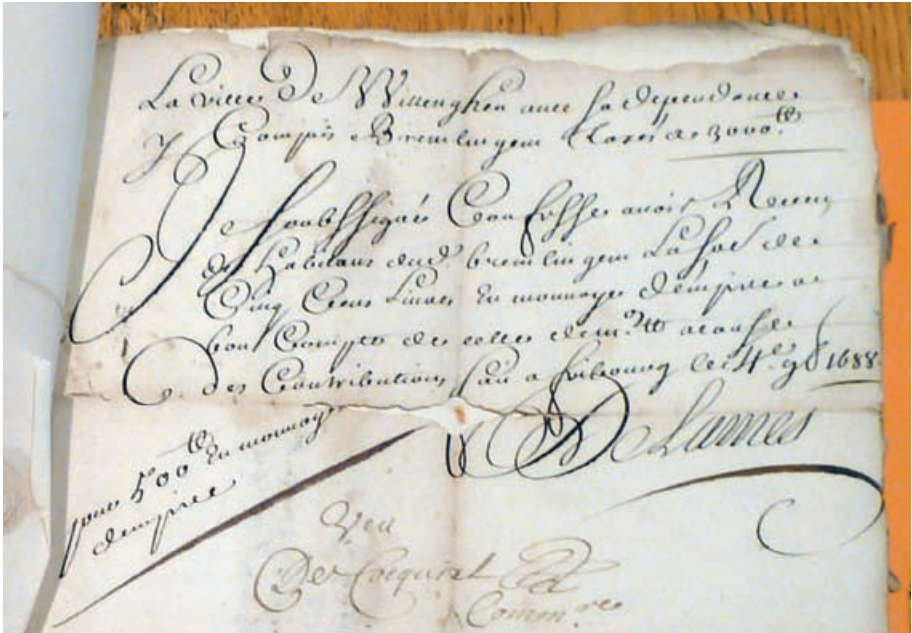 La ville De Willenghen avec sa dependances
y Compris Bremlingem taxés a 3000ᵗᵗ
Je soubssignée Confesse avoir Receu
des habitans dud. bremlingem La so͞e de
Cinq Cens Livres En monnoyes d'empire a
bon Compte de celles de m ᵗᵗ a cause
des Contributions fait a fribourg le 4.ᵉ 9ᵇ 1688
Delames
pour 500ᵗᵗ En monnoye
dempire
Veu
De Cocquiel
Commʳᵉ